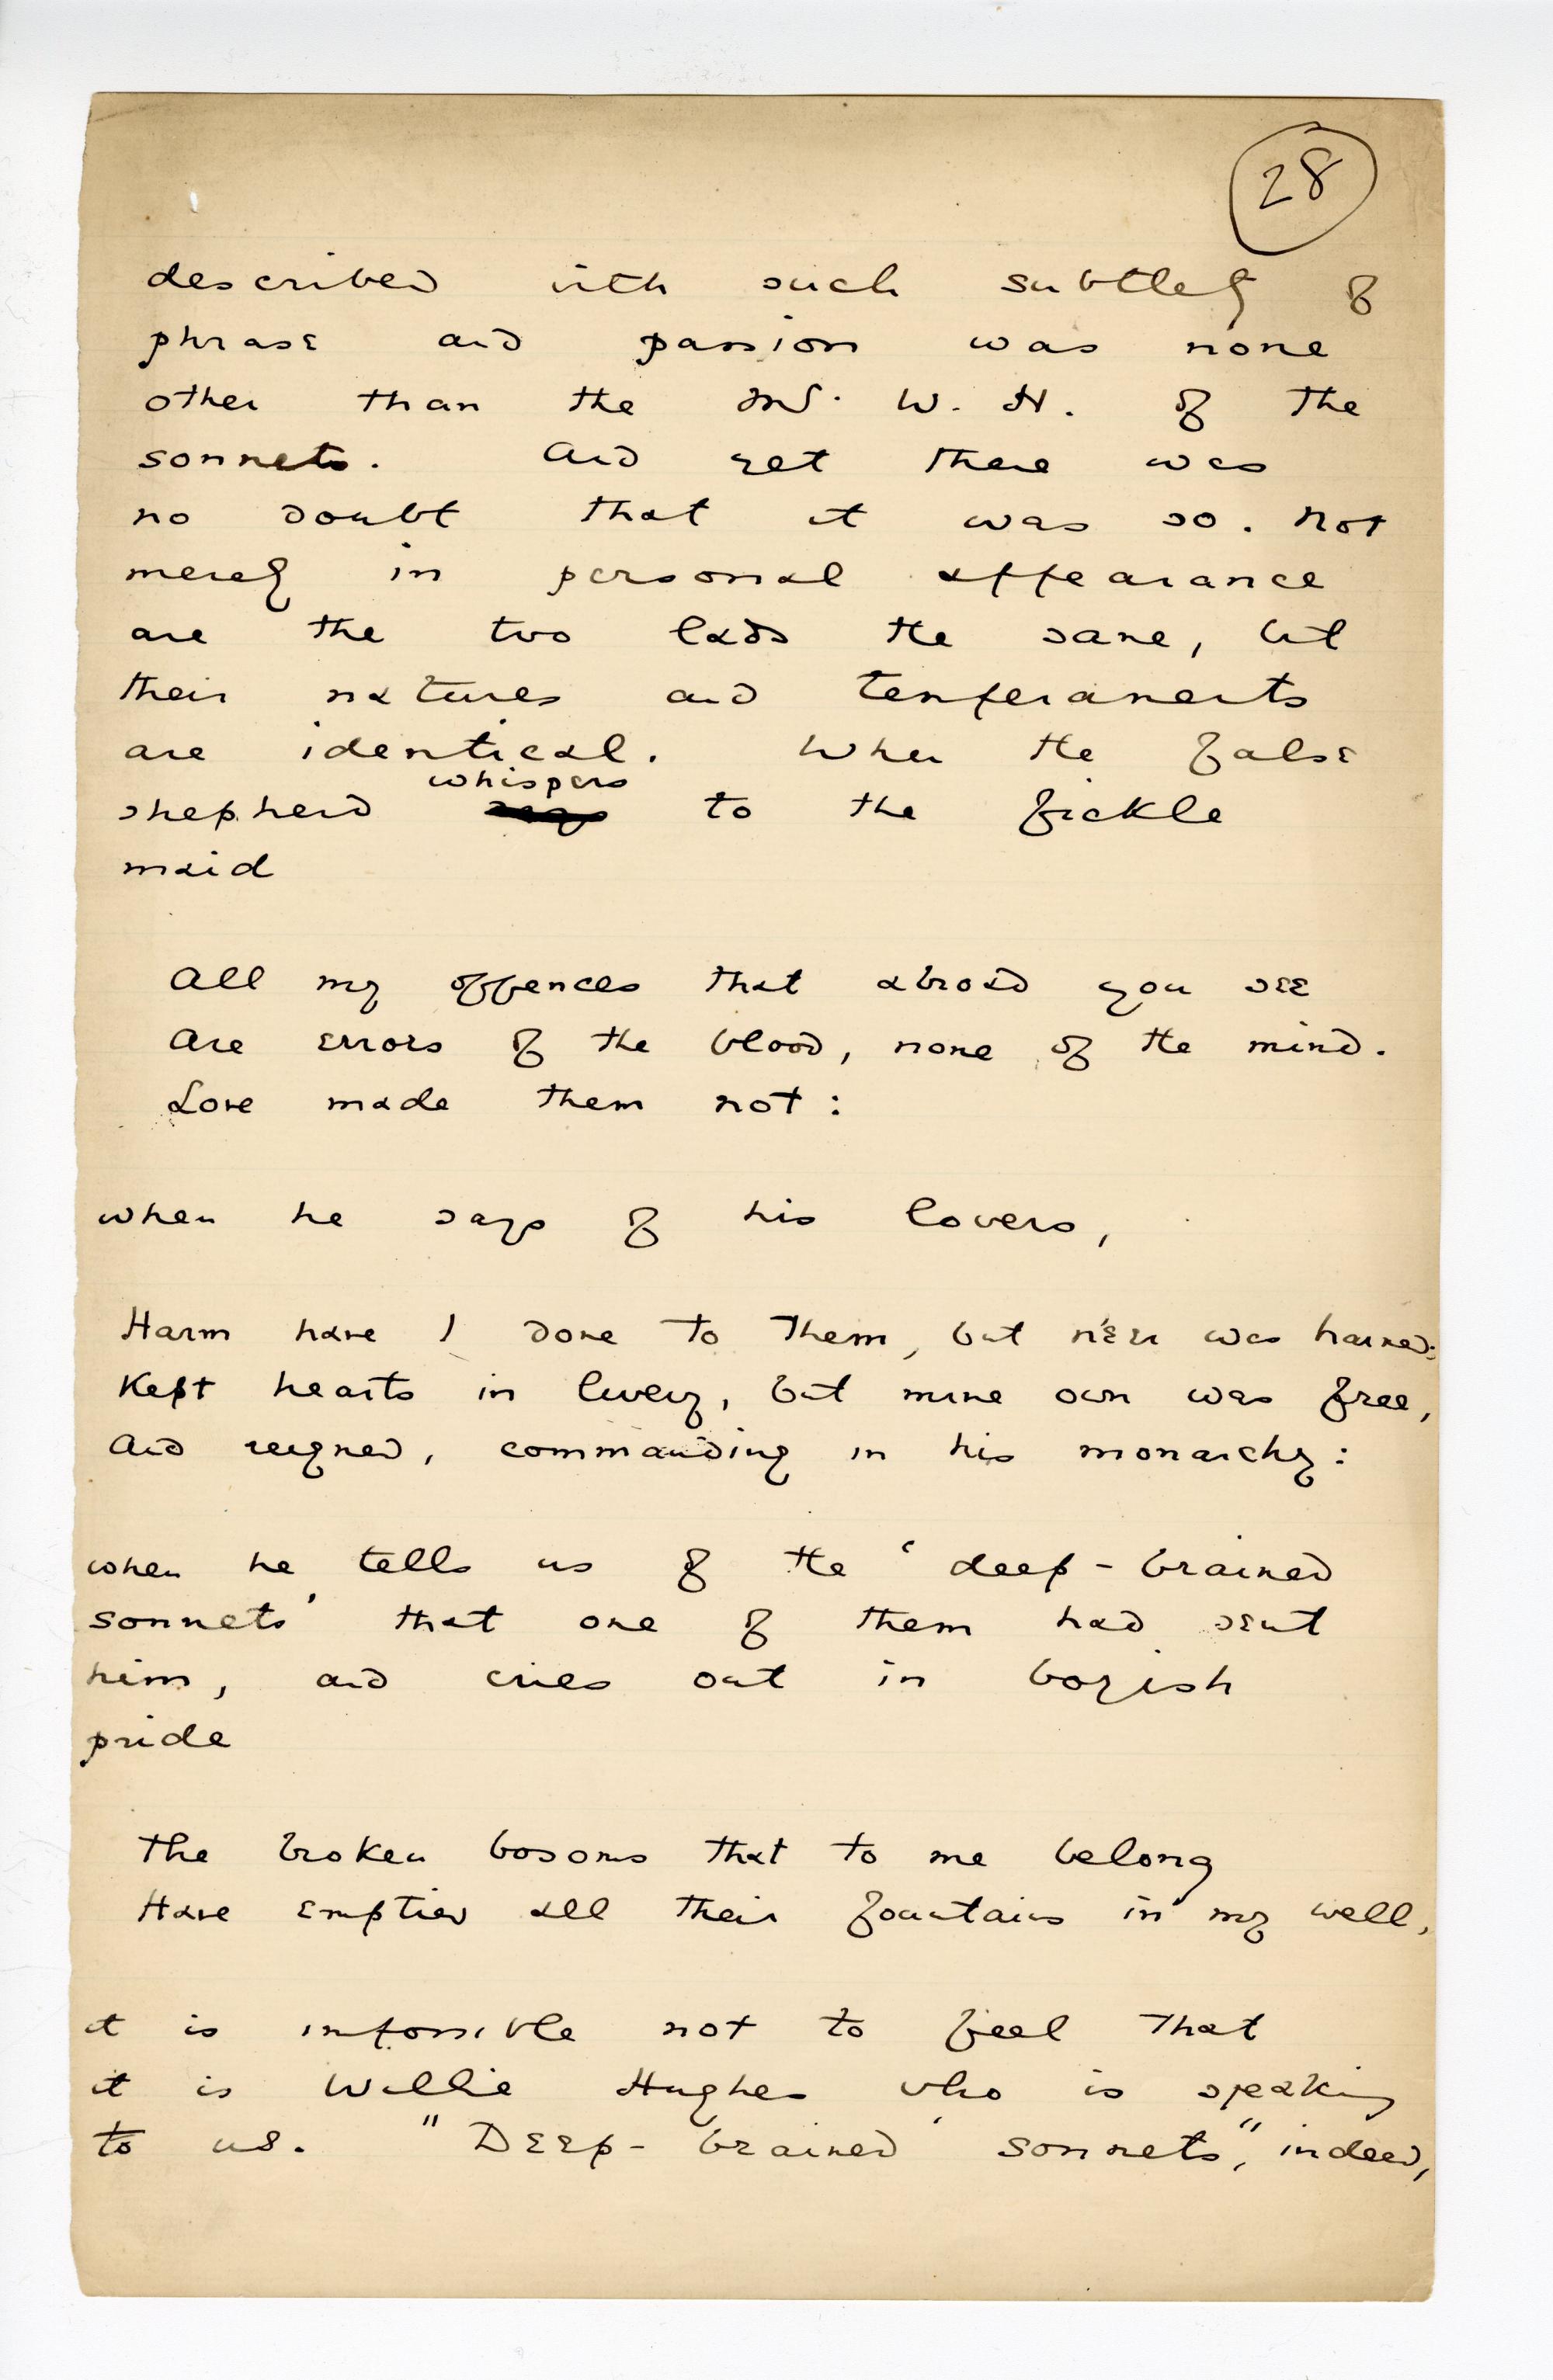 28
described with such subtlety of
phrase and passion was none
other than the Mr. W. H. of the
sonnets. And yet there was
no doubt that it was so. Not
merely in personal appearance
are the two lads the same, but
their natures and temperaments
are identical. When the false
whispers
shepherd to the fickle
maid
All my offences that abroad you see
Are errors of the blood, none of the mind.
Love made them not:
when he says of his lovers,
Harm have I done to them, but ne'er was harmed:
Kept hearts in livery, but mine own was free,
And reigned, commanding in his monarchy:
when he tells us of the 'deep-brained
sonnets' that one of them had sent
him, and cries out in boyish
pride
The broken bosoms that to me belong
Have emptied all their fountains in my well,
it is impossible not to feel that
it is Willie Hughes who is speaking
to us. "Deep-brained sonnets," indeed,